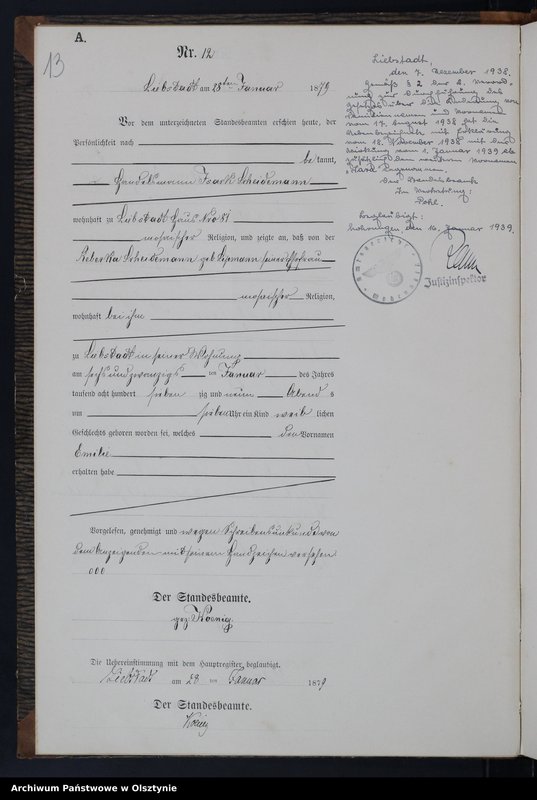 A.
Nr. 12
13
Liebstadt am 28ten Januar 1879
Vor dem unterzeichneten Standesbeamten erschien heute, der
Persönlichkeit nach
be kannt,
Handelsmann Isack Scheidemann
wohnhaft zu Liebstadt Haus Nro 81
mosaischer Religion, und zeigte an, daß von der
Rebekka Scheidemann geb Lipmann seiner Ehefrau
mosaischer Religion,
wohnhaft bei ihm
zu Liebstadt in seiner Wohnung
am sechs und zwanzigs ten Januar des Jahres
tausend acht hundert sieben zig und neun Abend s
um sieben Uhr ein Kind weib lichen
Geschlechts geboren worden sei, welches den Vornamen
Emilie
erhalten habe
Vorgelesen, genehmigt und wegen Schreibensunkunde von
dem Anzeigenden mit seinem Handzeichen versehen
ooo
Der Standesbeamte.
gez Koenig.
Die Uebereinstimmung mit dem Hauptregister beglaubigt.
Liebstadt am 28 ten Januar 1879
Der Standesbeamte.
König
Liebstadt,
den 7. Dezember 1938.
Gemäß § 2 der 2. Verord-
nung zur Durchführung des
Gesetzes über die Änderung von
Familiennamen und Vornamen
vom 17. August 1938 hat die
Nebenbezeichnete mit Erklärung
vom 18. November 1938 mit
Wirkung vom 1. Januar 1939 ab
zusätzlich den weiteren Vornamen
"Sara" angenommen.
Der Standesbeamte
In Vertretung:
Pohl.
Beglaubigt:
Mohrungen, den 16. Januar 1939.
Justizinspektor
Amtsgericht
Mohrungen
Archiwum Państwowe w Olsztynie